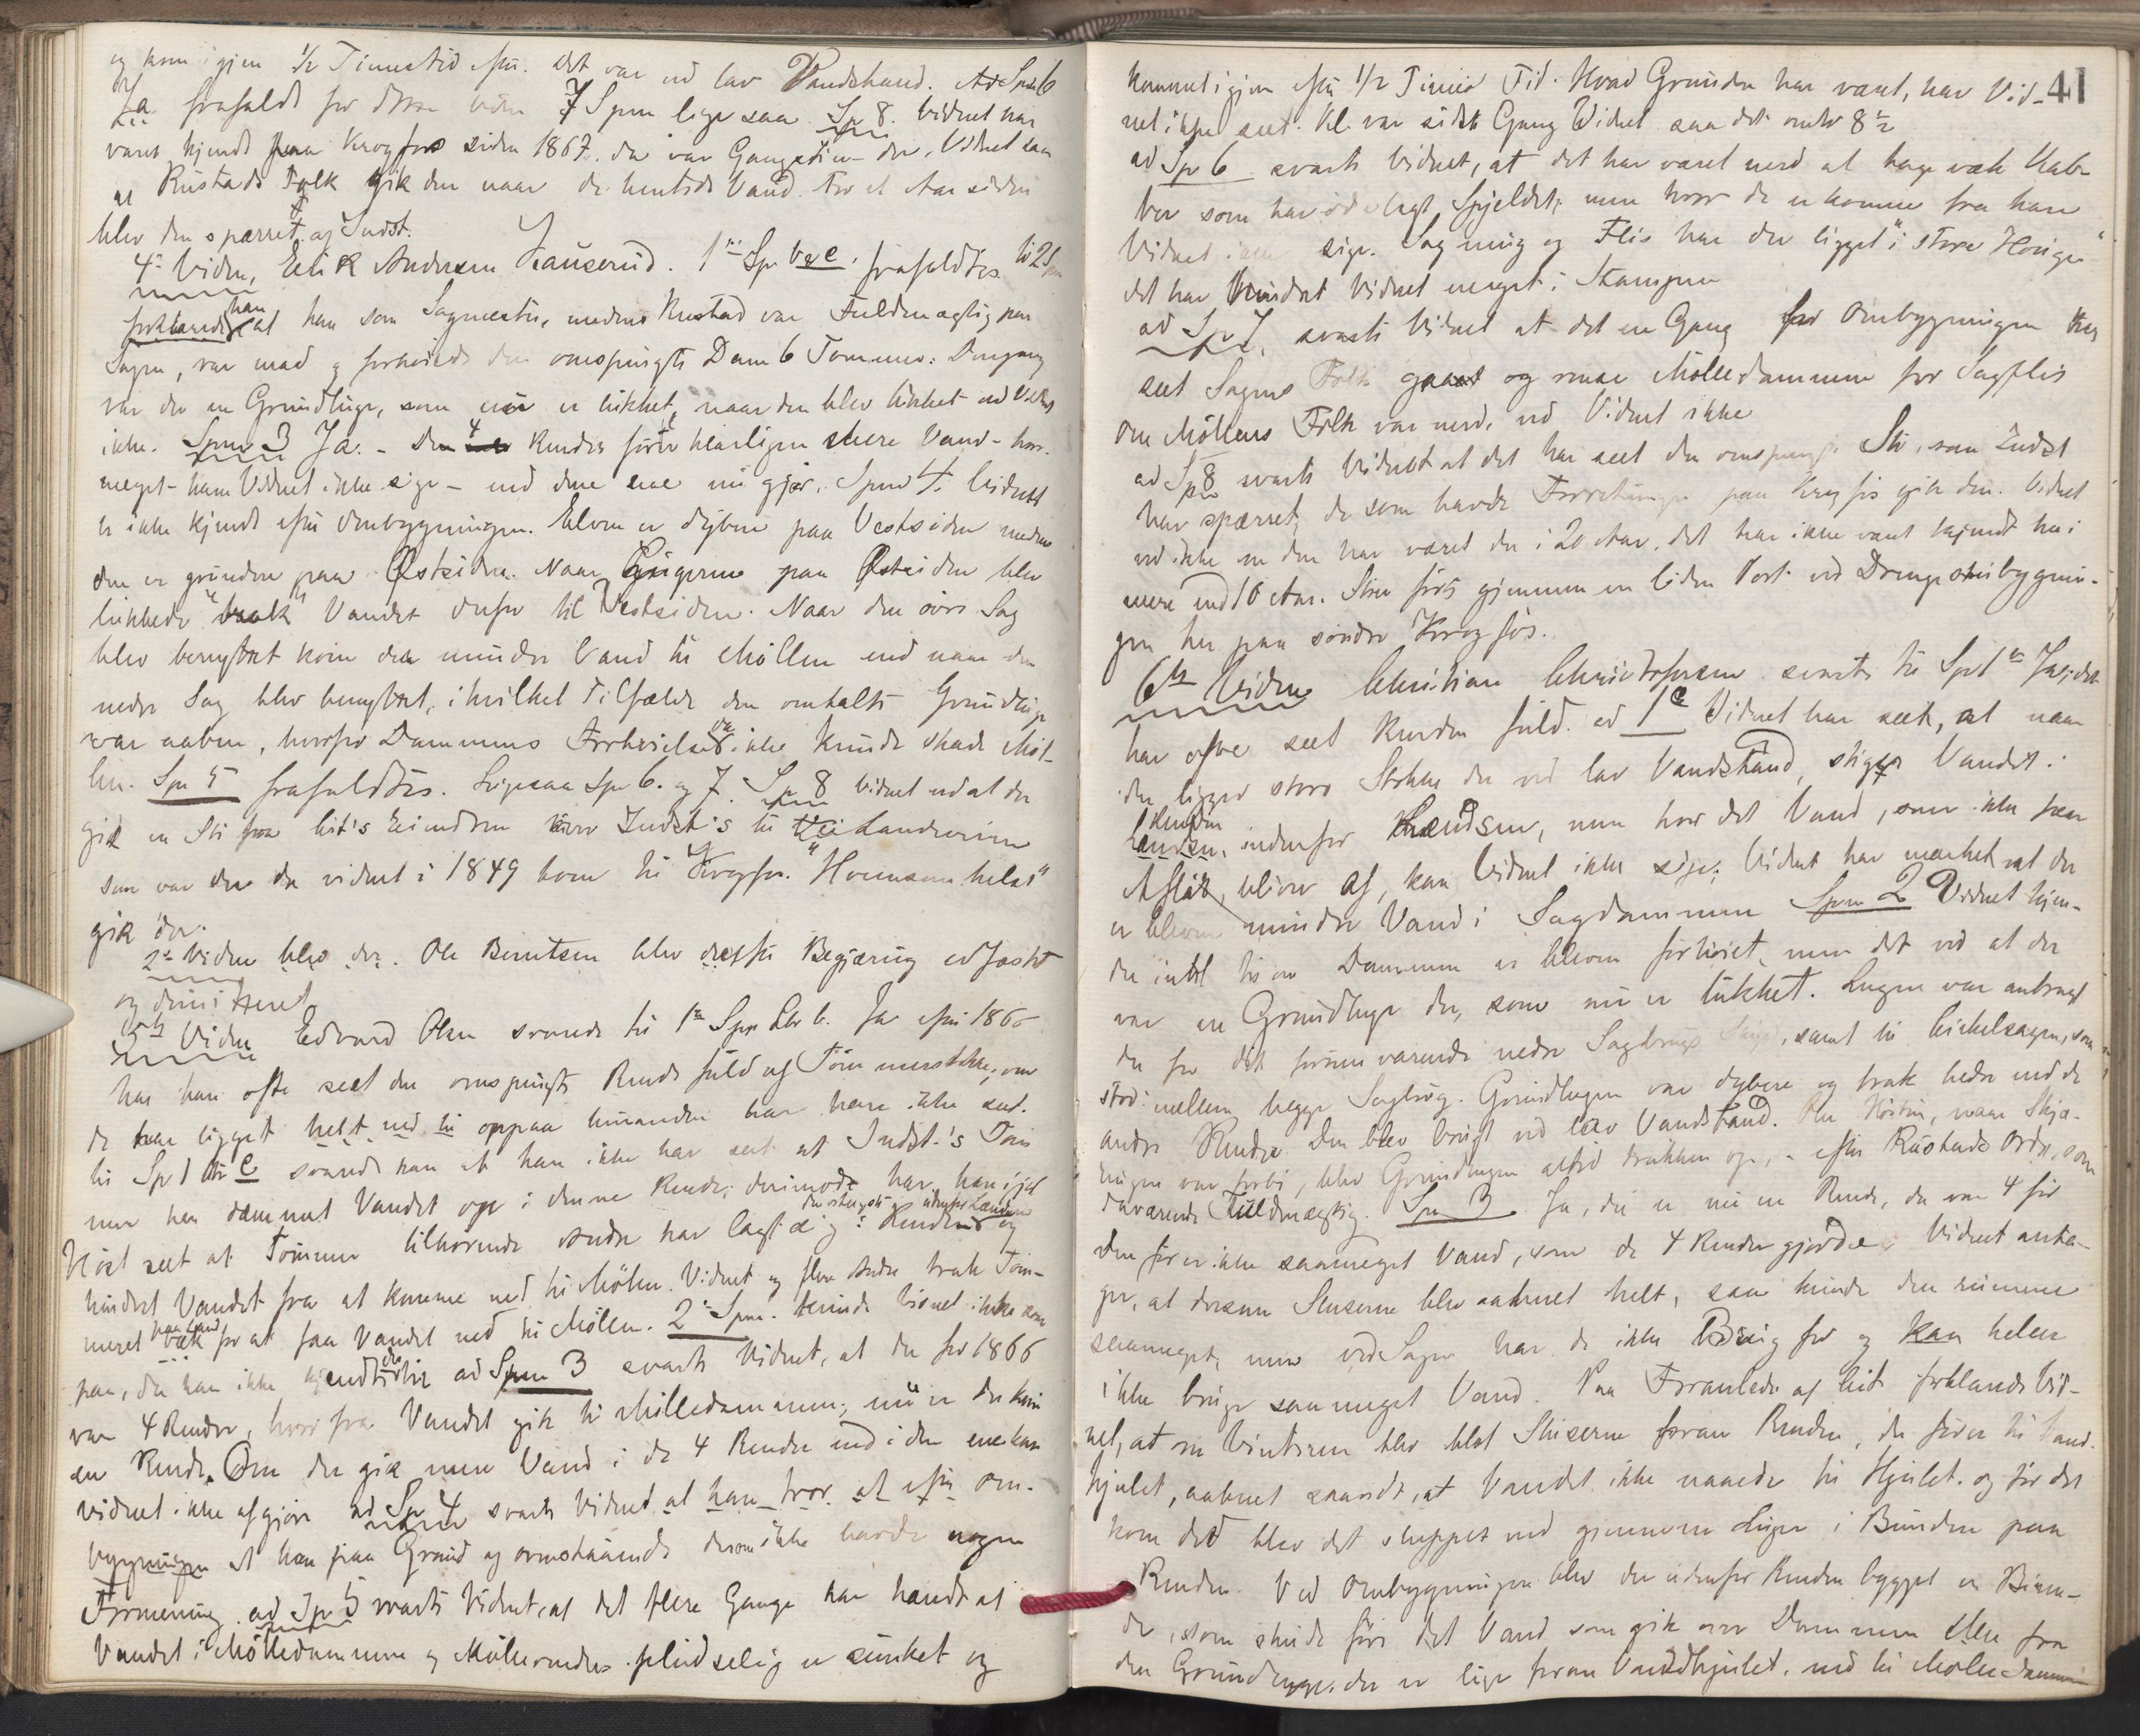 og kom igjen 1/2 Timestid efter. Det var ved lav Vandstand. Ad Spm 6
Ja. frafaldt for dette Vidne 7 Spm ligesaa Sp 8. Vidnet har
været kjendt paa Krogfos siden 1867. da var Gangstien der, Vidnet saa
at Rustads Folk gik den naar de hentede Vand. For et Aar siden
blev den spærret af Indst.
4de Vidne, Erik Andersen Hauserud. 1ste Sp b & c. frafaldtes. til 2 Spm
forklarede han at han som Sagmester, medens Rustad var Fuldmægtig paa
Sagen, var med og forhøiede den omspurgte Dam 6 Tommer: Dengang
var der en Grundluge, som nu er lukket, naar den blev lukket ved Vidnet
ikke. Spm 3 Ja. - De 4 Render førte klarligen mere Vand - hvor
meget kan Vidnet ikke sige - end den ene nu gjør. Spm 4. Vidnet
er ikke kjendt efter Ombygningen. Elven er dybere paa Vestsiden medens
den er grundere paa Østsiden. Naar Lugerne paa Østsiden blev
lukkede "trak" Vandet derfor til Vestsiden. Naar den øvre Sag
blev benyttet kom der mindre Vand til Møllen end naar den
nedre Sag blev benyttet, i hvilket Tilfælde den omtalte Grundluge
var aaben, hvorfor Dammens Forhøielse da ikke kunde skade Møl-
len. Spm 5 frafaldtes. Ligesaa Spm 6. og 7. Spm 8 Vidnet ved at der
gik en Sti fra Cit's Eiendom over Indst's til Landeveien
som var der da vidnet i 1849 kom til Krogfos. "Hvemsomhelst"
gik der.
2det Vidne blev der. Ole Berntsen blev derefter Begjæring edfæstet
og dimitteret
5te Vidne Edvard Olsen svarede til 1ste Spm Litr b. Ja efter 1866
har han ofte seet den omspurgte Rende fuld af Tømmerstokke, om
de har ligget helt ned til oppaa hinanden har han ikke seet.
til Sp 1 litr c svarede han at han ikke har seet at Indst.'s Tøm
mer har dæmmet Vandet op i denne Rende; derimod har han ifjor
Høst seet at Tømmer tilhørende andre har lagt sig i Renden og
hindret Vandet fra at komme ned til Møllen. Vidnet og flere Andre trak Tøm-
meret væk paa Land for at faa Vandet ned til Møllen. 2det Spm. kunde Vidnet ikke svare
paa, da han ikke kjendte det ad Spm 3 svarte Vidnet, at der før 1866
var 4 Render, hvorfra Vandet gik til Mølledammen; nu er der kun
en Rende. Om der gik mere Vand i de 4 Render end i den ene kan
vidnet ikke afgjøre ad Sp 4 svarte Vidnet at han tror at efter Om-
bygningen at han paa Grund af ovenstaaende derom ikke havde nogen
Formening. ad Sp 5 svarte Vidnet, at det flere Gange har hændt at
Vandet i Mølledammene og Møllerenden pludselig er sunket og

41
kommet igjen efter 1/2 Times Tid. Hvad Grunden har været, har Vid-
net ikke seet. Kl. var sidste Gang Vidnet saa det omtr 8 1/2
ad Sp 6 svarte Vidnet, at det har været med at tage væk Kab-
ber som har ødelagt Spjeldet; men hvor de er komne fra kan
Vidnet ikke sige. Sagmug og Flis har der ligget "i store Houger"
det har hindret Vidnet meget i Stampen
ad Sp 7. svarte Vidnet at det en Gang før Ombygningen har
seet Sagens Folk gaaet og rense Mølledammen for Sagflis
om Møllens Folk var med, ved Vidnet ikke
ad Sp 8 svarte Vidnet at det har seet den omspurgte Sti, som Indst
har spærret, de som havde Forretninger paa Krogfos gik den. Vidnet
ved ikke om den har været der i 20 Aar. det har ikke været kjendt her i
mere end 10 Aar. Stien førte gjennem en liden Port ved Drengestubygnin-
gen her paa søndre Krogfos.
6te Vidne Christian Christophersen svarte til Sp 1ste Ja, det
har ofte seet Renden fuld. ad 1 c Vidnet har seet, at naar
der ligger store Stokke der ved lav Vandstand, stiger Vandet i
Renden indenfor Lændsen, men hvor det Vand, som ikke faar
Afløb, bliver af, kan Vidnet ikke sige; Vidnet har mærket at der
er bleven mindre Vand i Sagdammen Spm 2 Vidnet kjen-
der intet til om Dammen er bleven forhøiet, men det ved at der
var en Grundluge der, som nu er lukket. Lugen var anbragt
der for det forrige værende nedre Sagbrugs Skyld, samt til Cirkelsagen, som
stod imellem begge Sagbrug. Grundlugen var dybere og trak bedre end de
andre Render Den blev brugt ved lav Vandstand. Om Høsten, naar Skjæ-
ringen var forbi, blev Grundlugen altid trukken op, - efter Rustads Ordre, som
daværende Fuldmægtig. Spm 3 Ja, der er nu en Rende, der var 4 før
Den fører ikke saameget Vand, som de 4 Render gjorde. Vidnet anta-
ger, at dersom Sluserne blev aabnet helt, saa kunde den rumme
saameget, men ved Sagen har de ikke Brug for og kan heller
ikke bruge saameget Vand. Paa Foranledn. af Cit forklarede Vid-
net, at om Vinteren blev blot Sluserne foran Renden, der fører til Vand-
hjulet, aabnet saavidt, at Vandet ikke naaede til Hjulet. og før det
kom did blev det sluppet ned gjennem Luger i Bunden paa
Renden. Ved Ombygningen blev der udenfor Renden bygget en Biren-
de, som skulde føre det Vand som gik over Dammen eller fra
den Grundluge, der er lige foran Vandhjulet, ned til Mølledammen